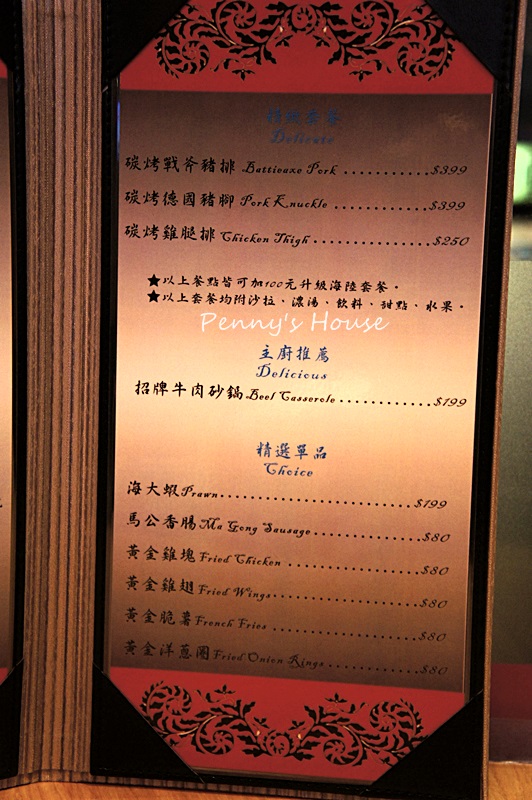 精緻套餐
Delicate
碳烤戰斧豬排 Battleaxe Pork ............$399
碳烤德國豬腳 Pork Knuckle ..............$399
碳烤雞腿排 Chicken Thigh ................$250
★以上餐點皆可加100元升級海陸套餐。
★以上套餐均附沙拉、濃湯、飲料、甜點、水果。
Penny's House
主廚推薦
Delicious
招牌牛肉砂鍋 Beef Casserole .............$199
精選單品
Choice
海大蝦 Prawn.........................$199
馬公香腸 Ma Gong Sausage ..............$80
黃金雞塊 Fried Chicken .................$80
黃金雞翅 Fried Wings...................$80
黃金脆薯 French Fries ..................$80
黃金洋蔥圈 Fried Onion Rings ............$80